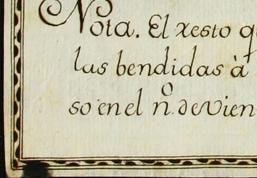 Nota. El resto q
las bendidas à
so en el nº. de vien